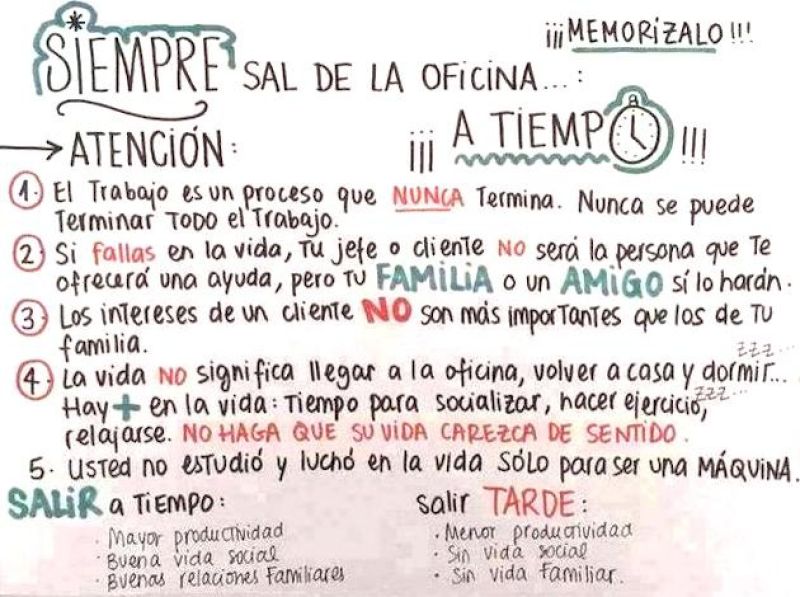 ¡¡¡MEMORÍZALO!!!
*SIEMPRE SAL DE LA OFICINA...:
→ ATENCIÓN: ¡¡¡ A TIEMPO !!!
1. El Trabajo es un proceso que NUNCA Termina. Nunca se puede
Terminar TODO el Trabajo.
2. Si fallas en la vida, Tu jefe o cliente NO será la persona que Te
ofrecerá una ayuda, pero Tu FAMILIA o un AMIGO sí lo harán.
3. Los intereses de un cliente NO son más importantes que los de Tu
familia.
zzz...
4. La vida NO significa llegar a la oficina, volver a casa y dormir...
zzz...
Hay + en la vida: Tiempo para socializar, hacer ejercicio,
relajarse. NO HAGA QUE SU VIDA CAREZCA DE SENTIDO.
5. USTED no ESTUDIÓ y luchó en la vida SÓLO para ser una MÁQUINA.
SALIR a TIEMPO:
· Mayor productividad
· Buena vida social
· Buenas relaciones Familiares
salir TARDE:
· Menor productividad
· Sin vida social
· Sin vida Familiar.